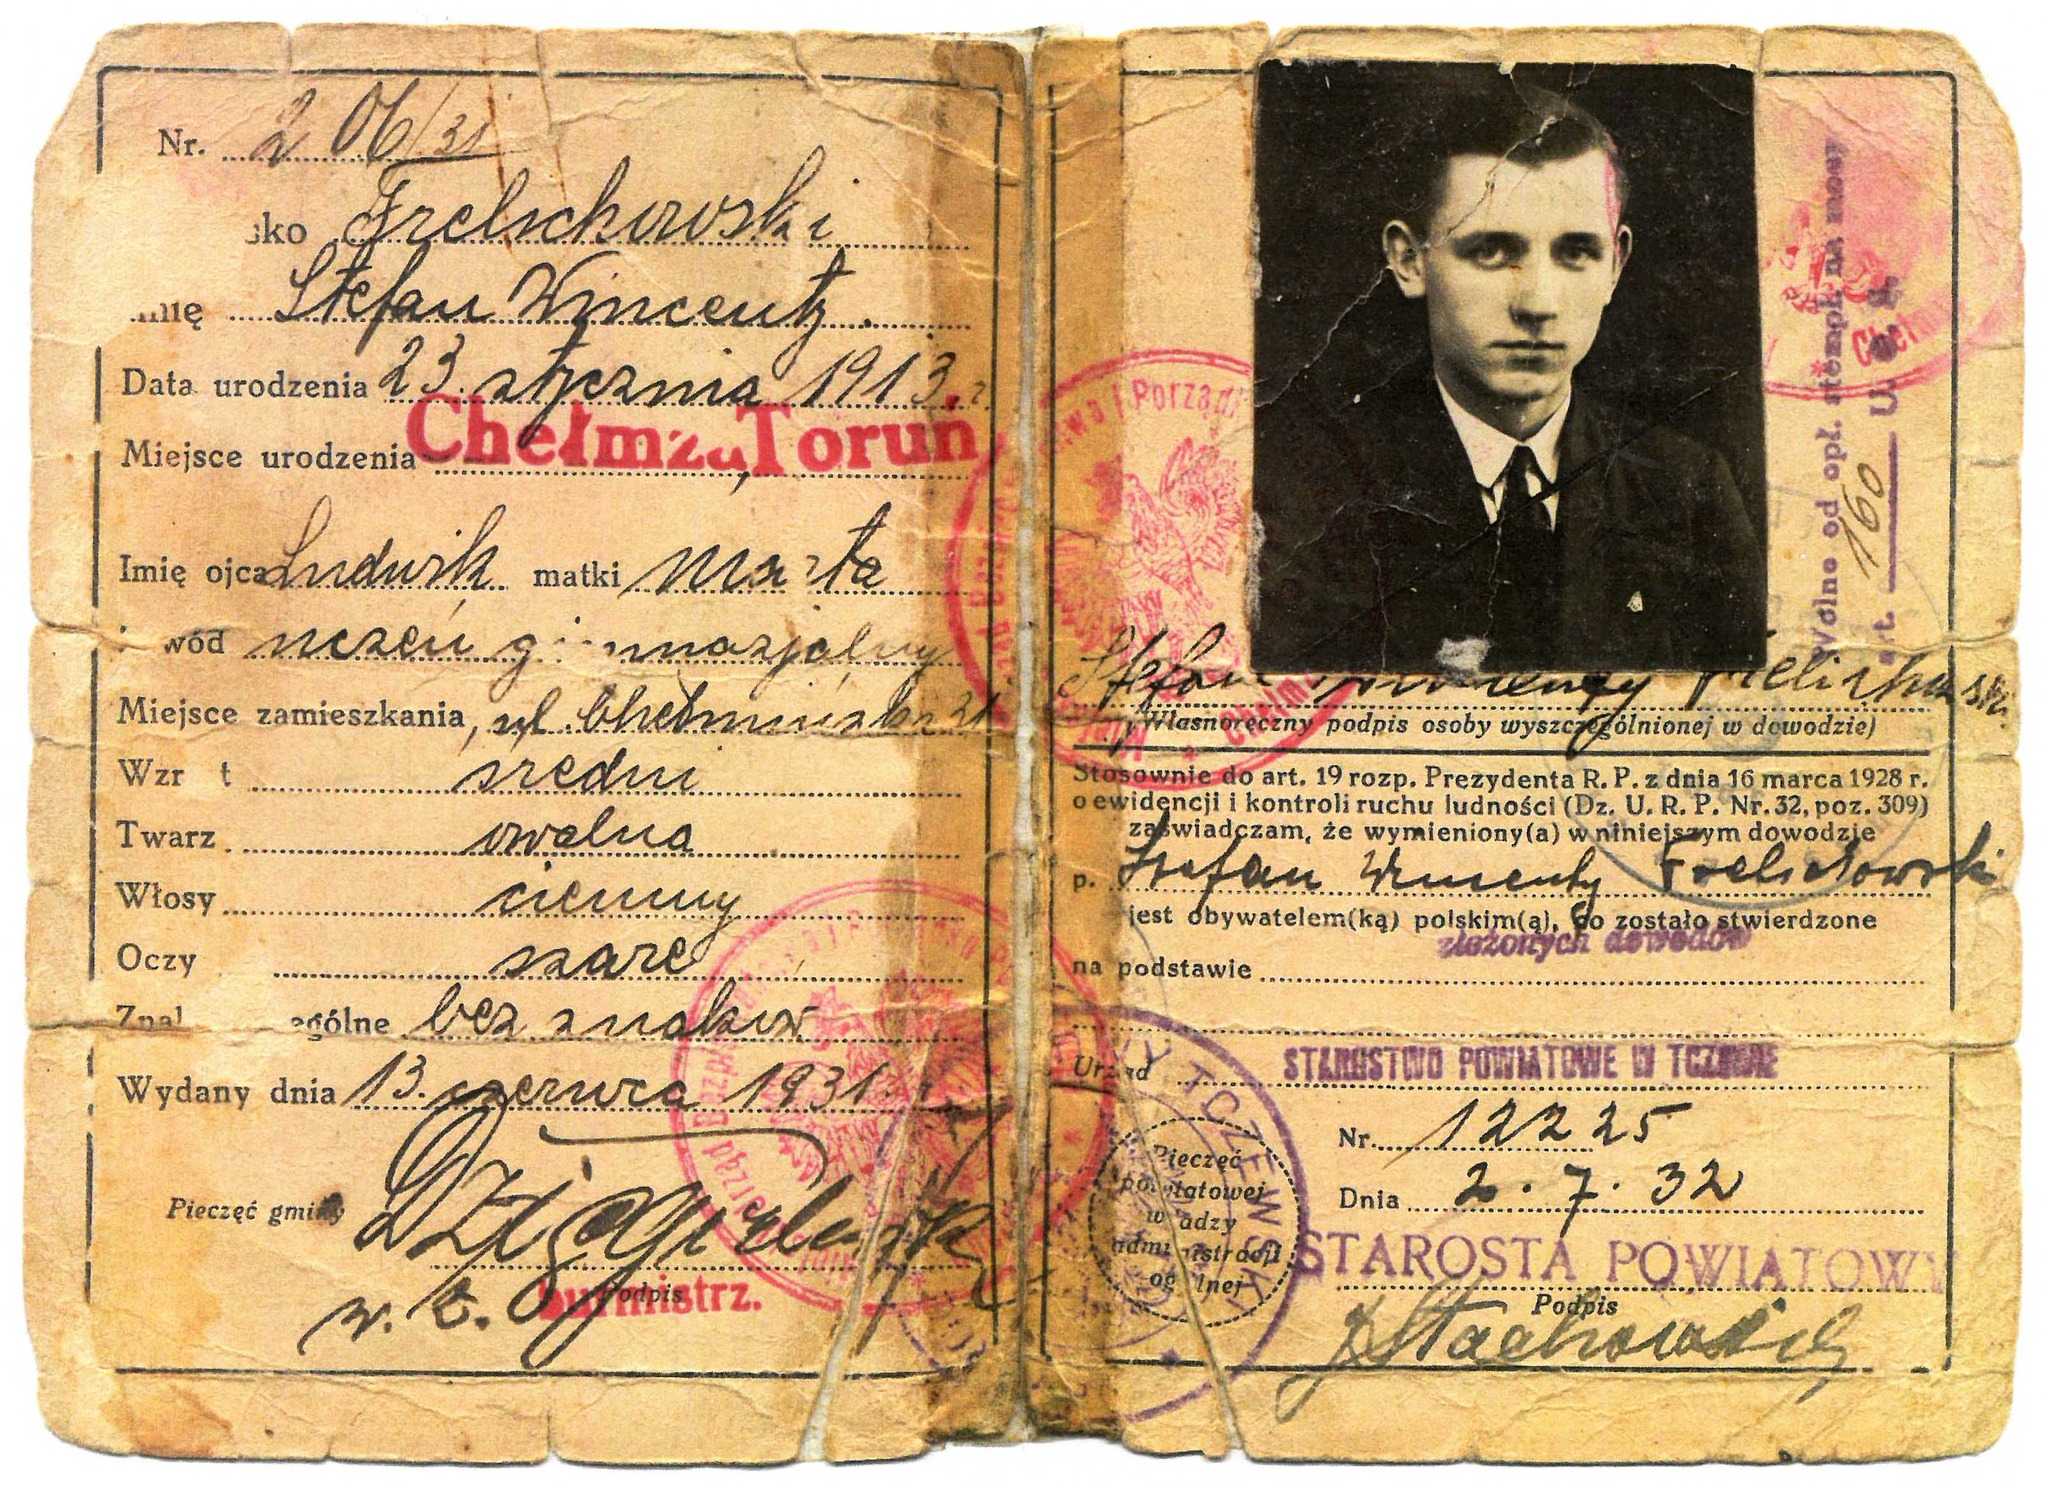 Nr. 206/31
sko Frelichowski
mię Stefan Wincenty
Data urodzenia 23. stycznia 1913 r.
Miejsce urodzenia Chełmża, Toruń
Imię ojca Ludwik matki Marta
wód uczeń gimnazjalny
Miejsce zamieszkania, ul. Chełmińska 21
Wzr t sredni
Twarz owalna
Włosy ciemny
Oczy szare
Zna ególne bez znaków
Wydany dnia 13. czerwca 1931.
Pieczęć gminy
w. z. burmistrz.
Podpis
Wolne od opł. stempl. na mocy
art. 160 U.
Stefan Wincenty Frelichowski
(Własnoręczny podpis osoby wyszczególnionej w dowodzie)
Stosownie do art. 19 rozp. Prezydenta R. P. z dnia 16 marca 1928 r.
o ewidencji i kontroli ruchu ludności (Dz. U. R. P. Nr. 32, poz. 309)
zaświadczam, że wymieniony(a) w niniejszym dowodzie
p. Stefan Wincenty Frelichowski
jest obywatelem(ką) polskim(ą), co zostało stwierdzone
złożonych dowodów
na podstawie
Urząd STAROSTWO POWIATOWE W TCZEWIE
Nr. 12225
Dnia 2. 7. 32
Pieczęć
powiatowej
władzy
administracji
ogólnej
STAROSTA POWIATOWY
Podpis